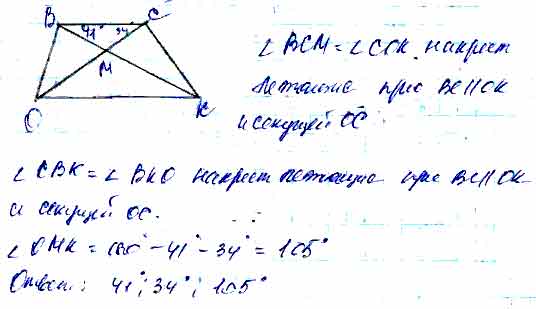 B C
41° 34
M
O K
∠ BCM = ∠ COK накрест
лежащие при BC||OK
и секущей OC
∠ CBK = ∠ BKO накрест лежащие при BC||OK
и секущей OC.
∠ OMK = 180° - 41° - 34° = 105°
Ответ: 41°; 34°; 105°